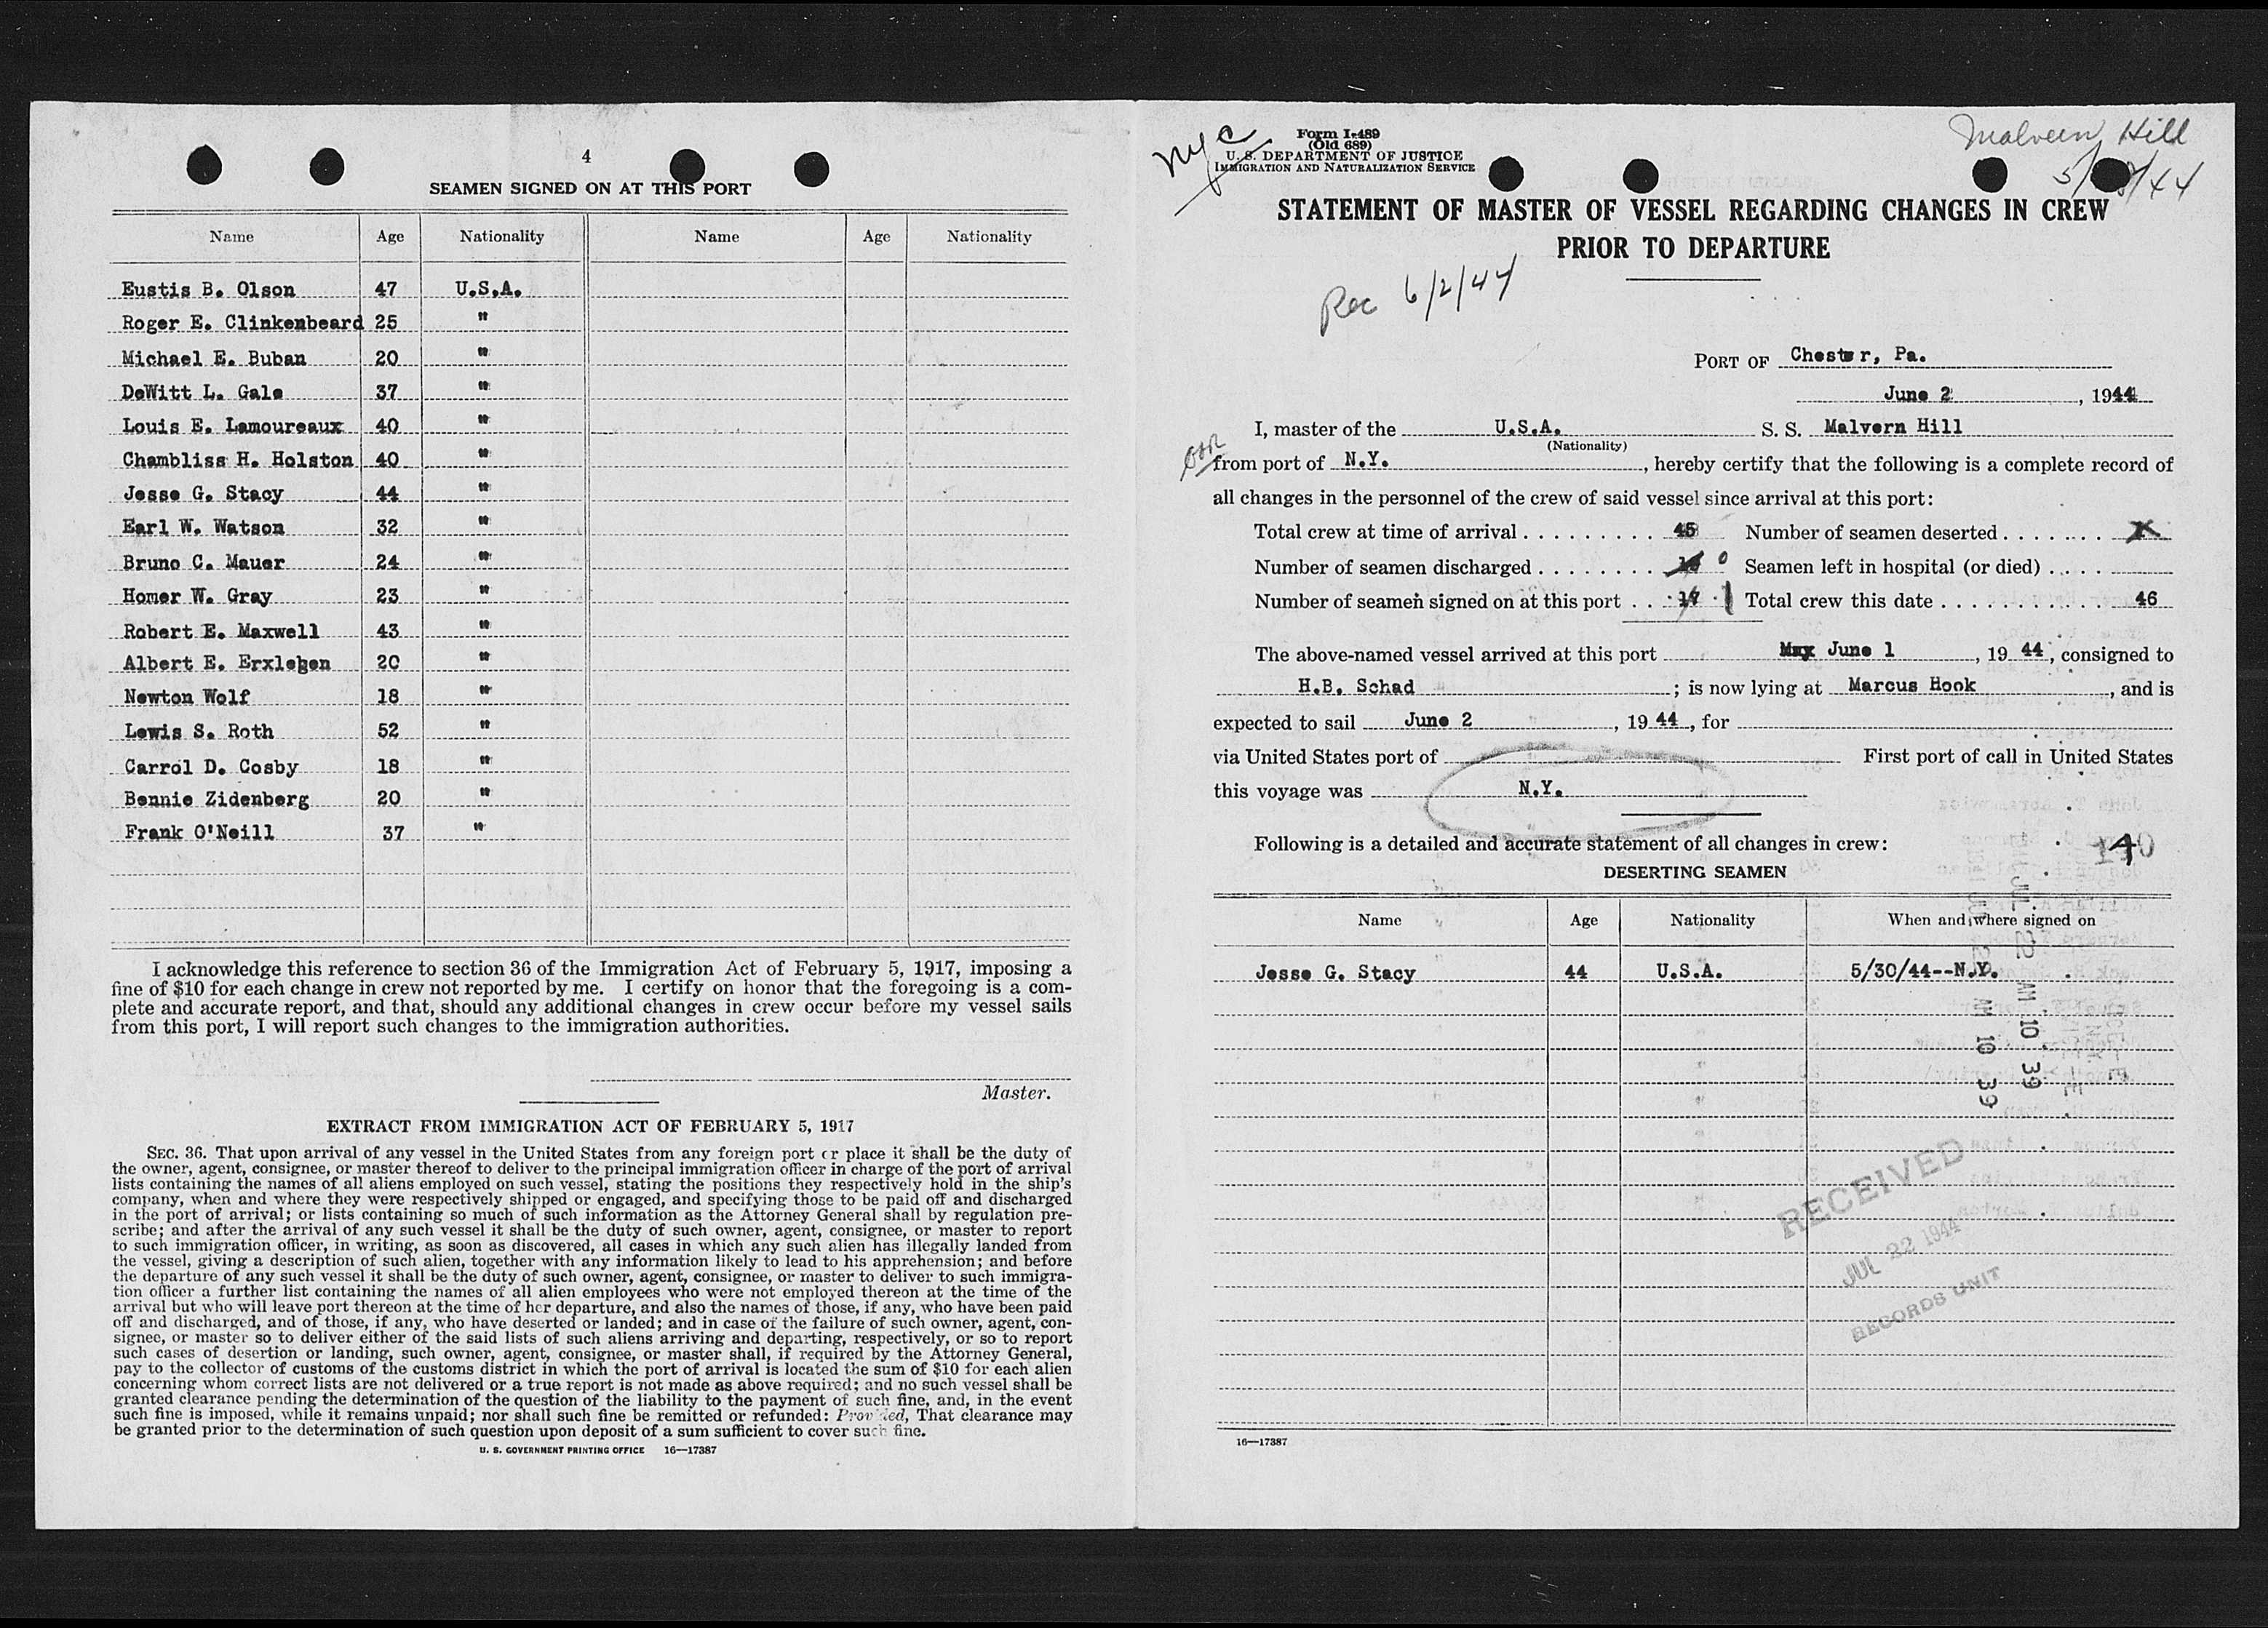 4
SEAMEN SIGNED ON AT THIS PORT
Name Age Nationality Name Age Nationality
Eustis B. Olson 47 U.S.A.
Roger E. Clinkenbeard 25 "
Michael E. Buban 20 "
DeWitt L. Gale 37 "
Louis E. Lamoureaux 40 "
Chambliss H. Holston 40 "
Jesse G. Stacy 44 "
Earl W. Watson 32 "
Bruno C. Mauer 24 "
Homer W. Gray 23 "
Robert E. Maxwell 43 "
Albert E. Erxleben 20 "
Newton Wolf 18 "
Lewis S. Roth 52 "
Carrol D. Cosby 18 "
Bennie Zidenberg 20 "
Frank O'Neill 37 "
I acknowledge this reference to section 36 of the Immigration Act of February 5, 1917, imposing a
fine of $10 for each change in crew not reported by me. I certify on honor that the foregoing is a com-
plete and accurate report, and that, should any additional changes in crew occur before my vessel sails
from this port, I will report such changes to the immigration authorities.
Master.
EXTRACT FROM IMMIGRATION ACT OF FEBRUARY 5, 1917
SEC. 36. That upon arrival of any vessel in the United States from any foreign port or place it shall be the duty of
the owner, agent, consignee, or master thereof to deliver to the principal immigration officer in charge of the port of arrival
lists containing the names of all aliens employed on such vessel, stating the positions they respectively hold in the ship's
company, when and where they were respectively shipped or engaged, and specifying those to be paid off and discharged
in the port of arrival; or lists containing so much of such information as the Attorney General shall by regulation pre-
scribe; and after the arrival of any such vessel it shall be the duty of such owner, agent, consignee, or master to report
to such immigration officer, in writing, as soon as discovered, all cases in which any such alien has illegally landed from
the vessel, giving a description of such alien, together with any information likely to lead to his apprehension; and before
the departure of any such vessel it shall be the duty of such owner, agent, consignee, or master to deliver to such immigra-
tion officer a further list containing the names of all alien employees who were not employed thereon at the time of the
arrival but who will leave port thereon at the time of her departure, and also the names of those, if any, who have been paid
off and discharged, and of those, if any, who have deserted or landed; and in case of the failure of such owner, agent, con-
signee, or master so to deliver either of the said lists of such aliens arriving and departing, respectively, or so to report
such cases of desertion or landing, such owner, agent, consignee, or master shall, if required by the Attorney General,
pay to the collector of customs of the customs district in which the port of arrival is located the sum of $10 for each alien
concerning whom correct lists are not delivered or a true report is not made as above required; and no such vessel shall be
granted clearance pending the determination of the question of the liability to the payment of such fine, and, in the event
such fine is imposed, while it remains unpaid; nor shall such fine be remitted or refunded: Provided, That clearance may
be granted prior to the determination of such question upon deposit of a sum sufficient to cover such fine.
U. S. GOVERNMENT PRINTING OFFICE 16—17387
NYC
Form I-489
(Old 689)
U. S. DEPARTMENT OF JUSTICE
IMMIGRATION AND NATURALIZATION SERVICE
Malvern Hill
STATEMENT OF MASTER OF VESSEL REGARDING CHANGES IN CREW
PRIOR TO DEPARTURE
Rec 6/2/44
PORT OF Chester, Pa.
June 2, 1944
I, master of the U.S.A. S. S. Malvern Hill
(Nationality)
from port of N.Y., hereby certify that the following is a complete record of
all changes in the personnel of the crew of said vessel since arrival at this port:
Total crew at time of arrival . . . . . . . . . 45 Number of seamen deserted . . . . . . . .
Number of seamen discharged . . . . . . . . 0 Seamen left in hospital (or died) . . . .
Number of seamen signed on at this port . . 17 1 Total crew this date . . . . . . . . . . . 46
The above-named vessel arrived at this port May June 1, 19 44, consigned to
H.B. Schad; is now lying at Marcus Hook, and is
expected to sail June 2, 19 44, for
via United States port of First port of call in United States
this voyage was N.Y.
Following is a detailed and accurate statement of all changes in crew:
DESERTING SEAMEN
Name Age Nationality When and where signed on
Jesse G. Stacy 44 U.S.A. 5/30/44--N.Y.
AM 10 39
AM 10 39
RECEIVED
JUL 22 1944
RECORDS UNIT
16—17387